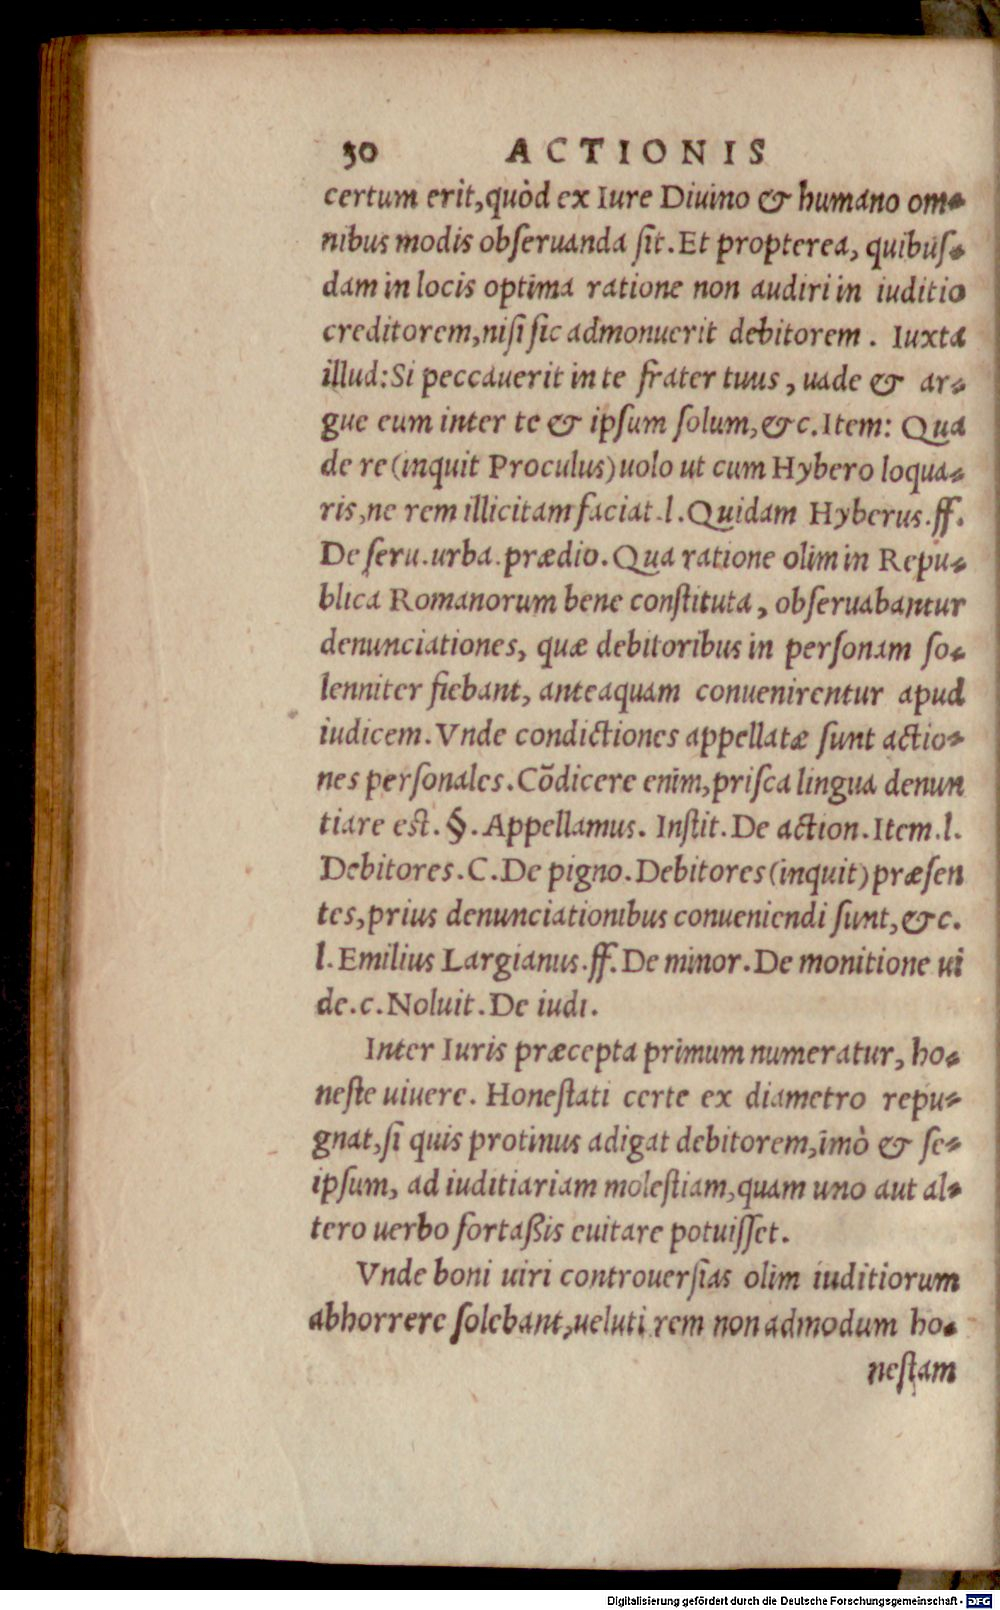 30 ACTIONIS
certum erit, quòd ex Iure Diuino & humano om-
nibus modis obſeruanda ſit. Et propterea, quibuſ-
dam in locis optima ratione non audiri in iuditio
creditorem, niſi ſic admonuerit debitorem. Iuxta
illud: Si peccauerit in te frater tuus, uade & ar-
gue eum inter te & ipſum ſolum, &c. Item: Qua
de re (inquit Proculus) uolo ut cum Hybero loqua-
ris, ne rem illicitam faciat. l. Quidam Hyberus. ff.
De ſeru. urba. prædio. Qua ratione olim in Repu-
blica Romanorum bene conſtituta, obſeruabantur
denunciationes, quæ debitoribus in perſonam ſo-
lenniter fiebant, anteaquam conuenirentur apud
iudicem. Vnde condictiones appellatæ ſunt actio-
nes perſonales. Cõdicere enim, priſca lingua denun
tiare eſt. §. Appellamus. Inſtit. De action. Item. l.
Debitores. C. De pigno. Debitores (inquit) præſen
tes, prius denunciationibus conueniendi ſunt, &c.
l. Emilius Largianus. ff. De minor. De monitione ui
de. c. Noluit. De iudi.
Inter Iuris præcepta primum numeratur, ho-
neſte uiuere. Honeſtati certe ex diametro repu-
gnat, ſi quis protinus adigat debitorem, imò & ſe-
ipſum, ad iuditiariam moleſtiam, quam uno aut al-
tero uerbo fortaßis euitare potuiſſet.
Vnde boni uiri controuerſias olim iuditiorum
abhorrere ſolebant, ueluti rem non admodum ho-
neſtam
Digitalisierung gefördert durch die Deutsche Forschungsgemeinschaft - DFG